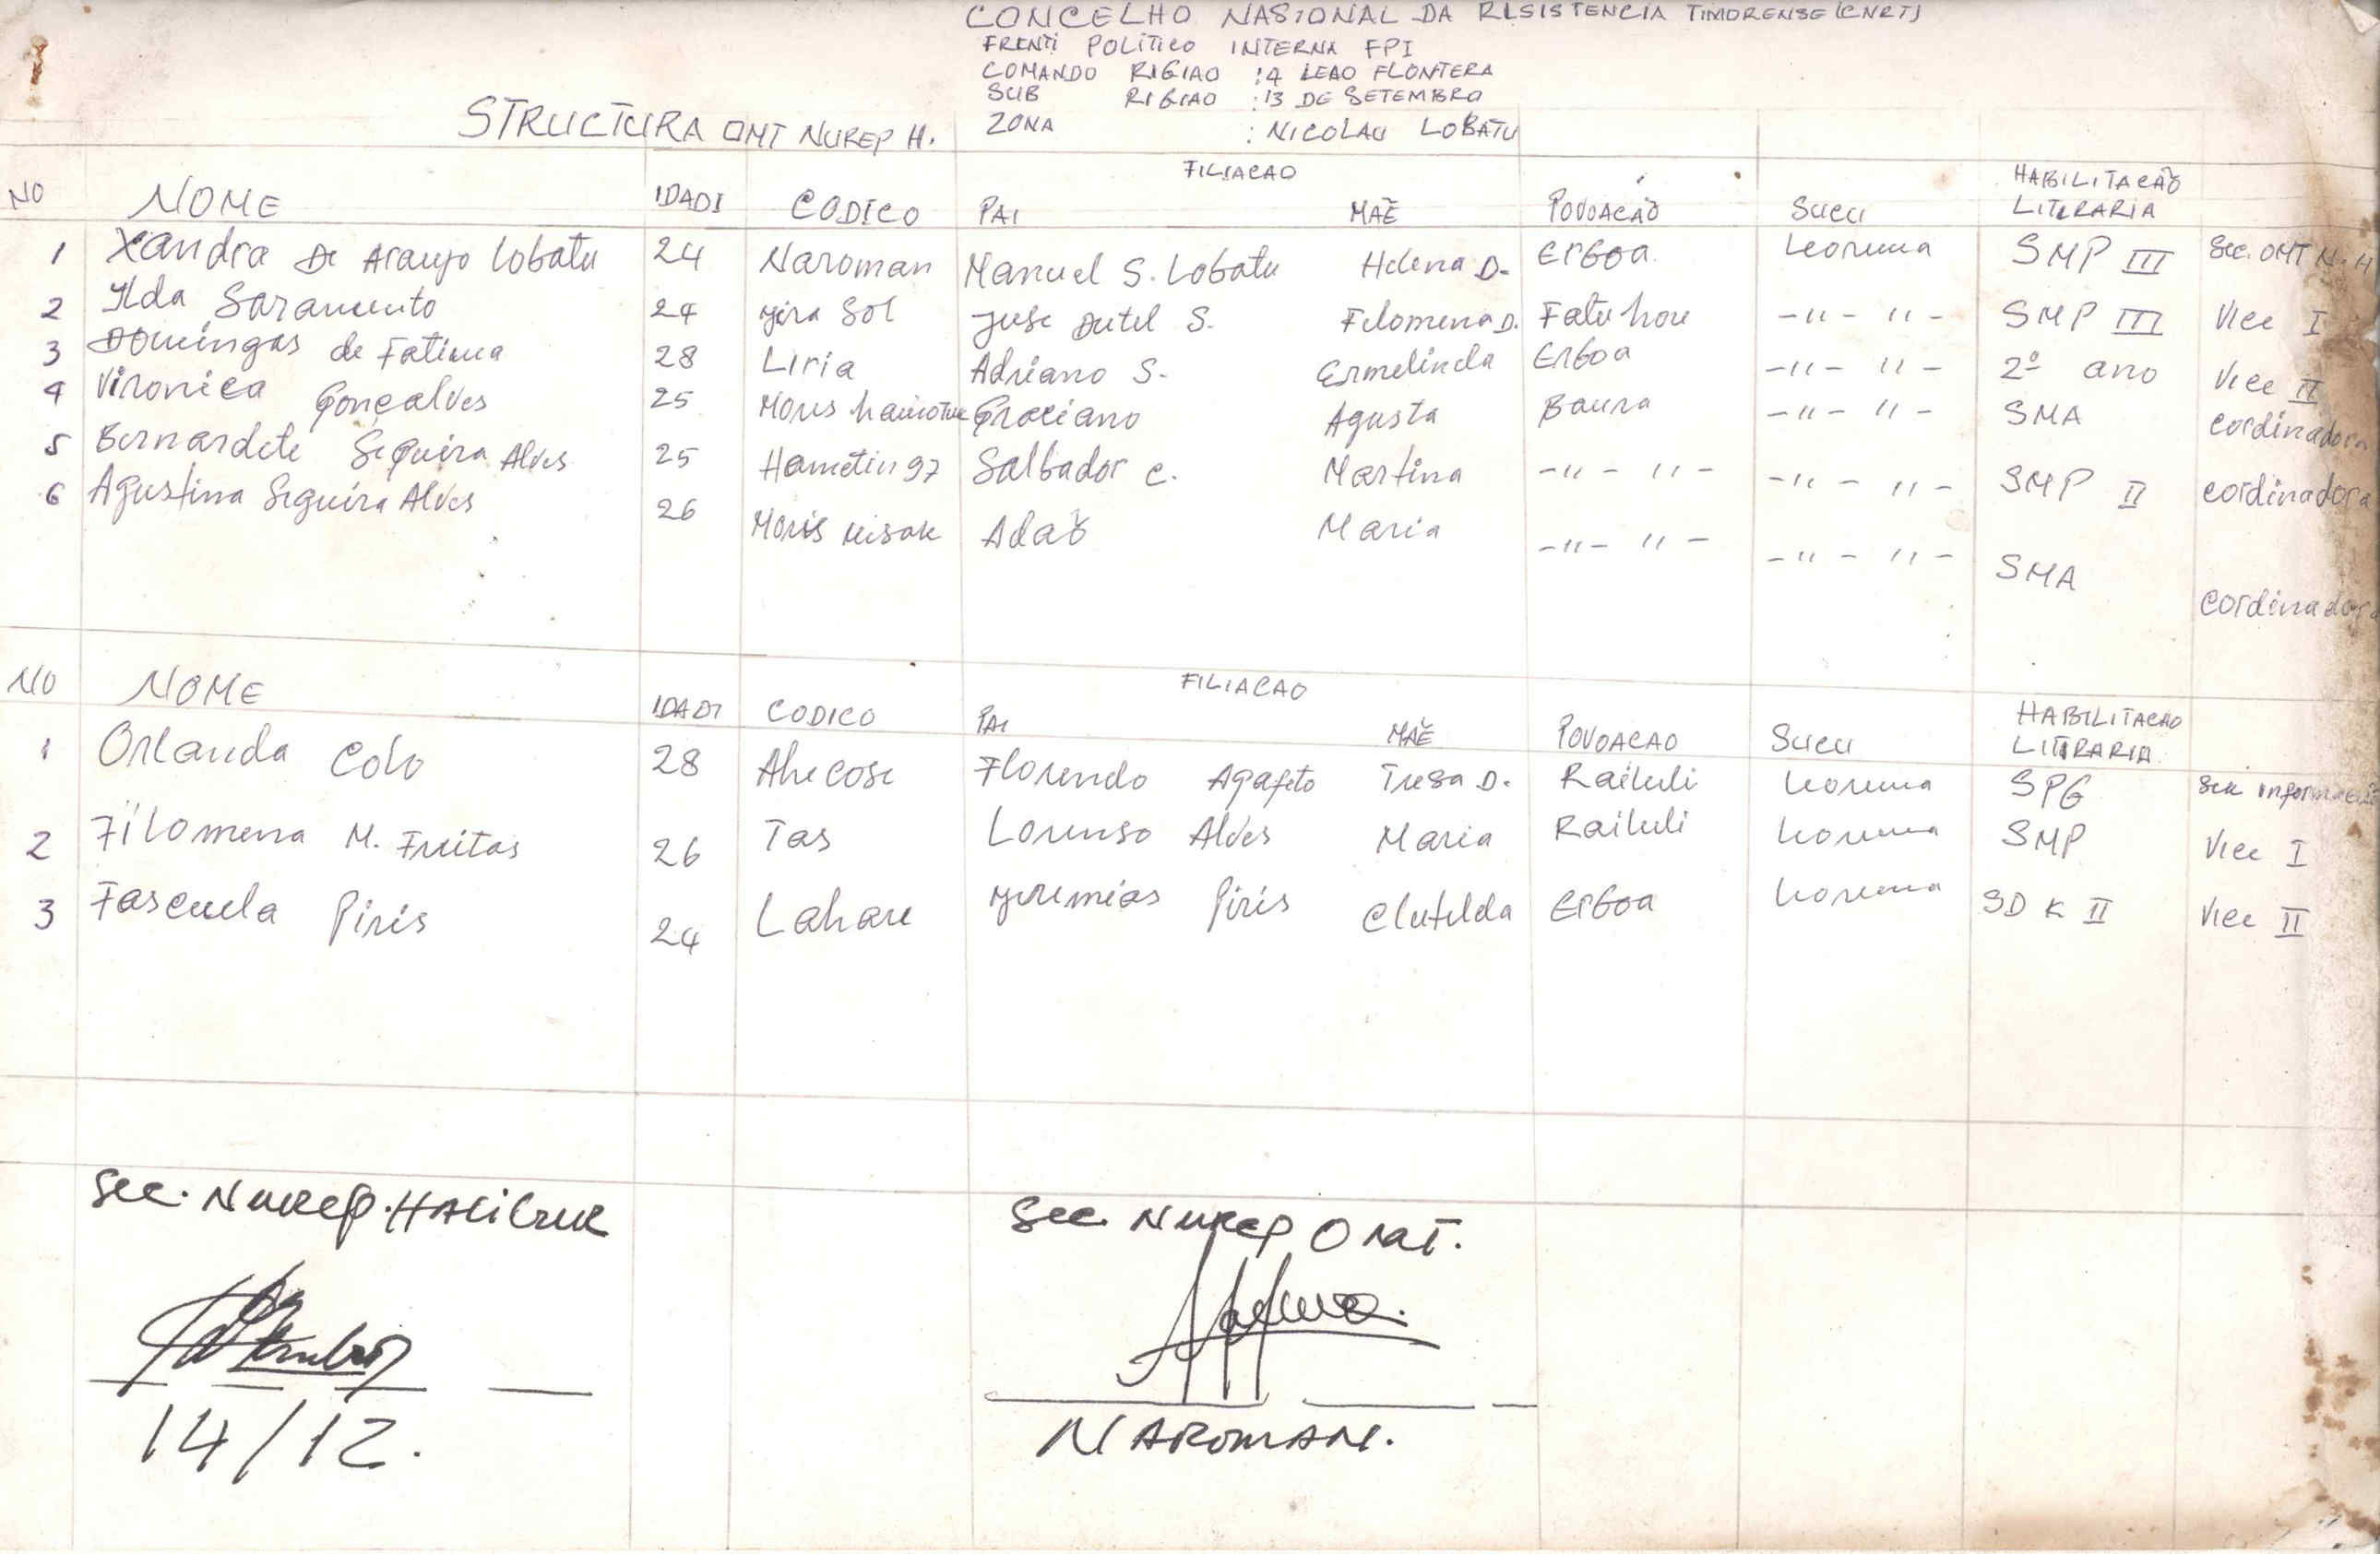 CONCELHO NASIONAL DA RISISTENCIA TIMORENSE (CNRT)
FRENTI POLITICO INTERNA FPI
COMANDO RIGIAO : 4 LEAO FLONTERA
SUB RIGIAO : 13 DE SETEMBRO
STRUCTURA OMT NUREP H. ZONA : NICOLAU LOBATU
FILIACAO
NO NOME IDADI CODICO PAI MAÊ POVOACÃO SUCU HABILITACÃO LITERARIA
1 Xandra De Araujo Lobatu 24 Naroman Manuel S. Lobatu Helena D. Erboa Leoruma SMP III Sec. OMT N. H
2 Ilda Saramento 24 Jira Sol Juse Dutel S. Filomena D. Fatu hou -"- "- SMP III Vice I
3 Domingas de Fatima 28 Liria Adriano S. Ermelinda Erboa -"- "- 2º ano Vice II
4 Vironica Gonçalves 25 Moris Graciano Agusta Baura -"- "- SMA cordinadora
5 Bernardete Sequira Alves 25 Hametin 97 Salbador C. Martina -"- "- -"- "- SMP II cordinadora
6 Agustina Siquira Alves 26 Moris Adaõ Maria -"- "- -"- "- SMA cordinadora
FILIACAO
NO NOME IDADI CODICO PAI MAÊ POVOACAO SUCU HABILITACAO LITIRARIA
1 Orlanda Colo 28 Ahecose Florendo Agapeto Tresa D. Railuli Leoruma SPG
2 Filomena M. Freitas 26 Tas Lorenso Alves Maria Railuli Leoruma SMP Vice I
3 Fascuela Piris 24 Lahare Jeremias Piris Clutilda Erboa Leoruma SD K II Vice II
Sec. NUREP. HALILRUK Sec. NUREP OMT.
14/12. NAROMAN.